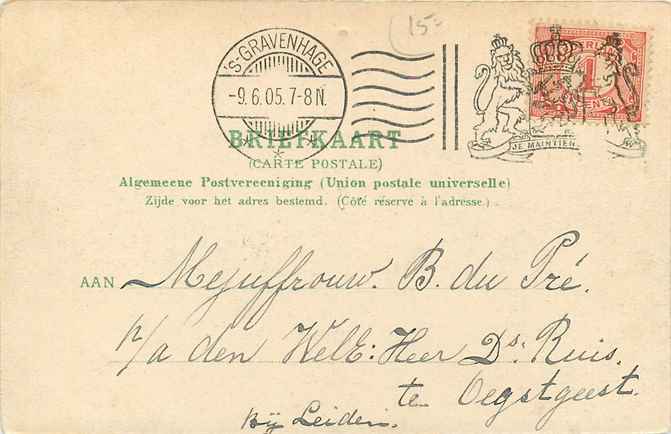 15=
'S-GRAVENHAGE
-9.6.05.7-8N.
JE MAINTIEN
1
BRIEFKAART
(CARTE POSTALE)
Algemeene Postvereeniging (Union postale universelle)
Zijde voor het adres bestemd. (Côté réservé à l'adresse.)
AAN Mejuffrouw. B. du Pré.
p/a den WelE: Heer Ds. Ruis.
te Oegstgeest.
bij Leiden.